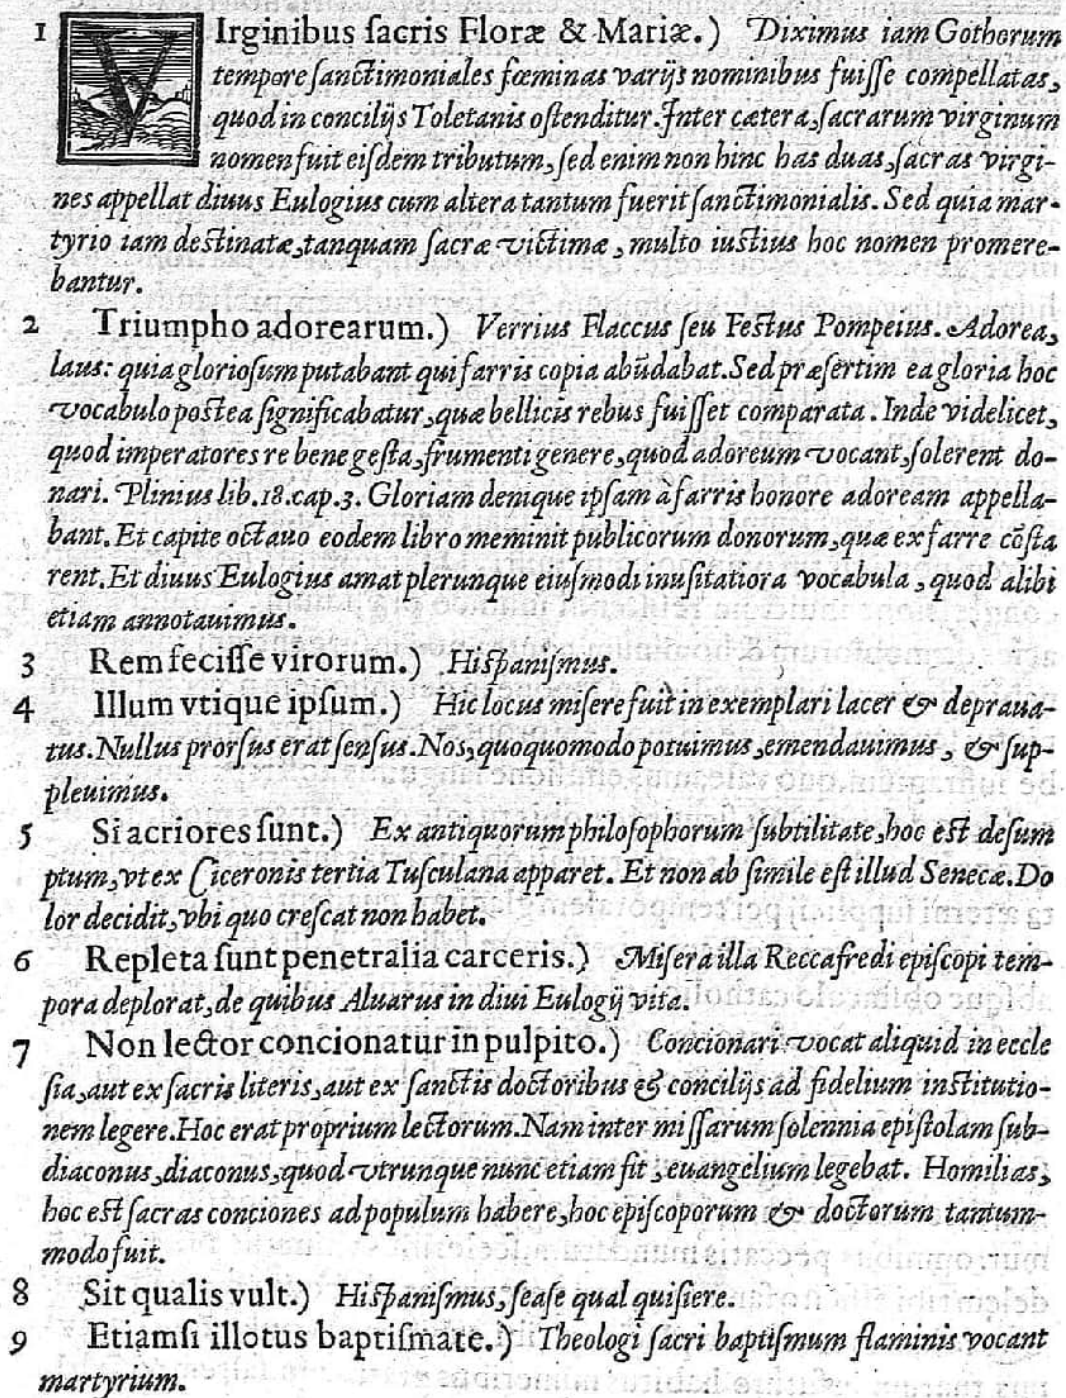 1 VIrginibus ſacris Floræ & Mariæ.) Diximus iam Gothorum
tempore ſanctimoniales fœminas varijs nominibus fuiſſe compellatas,
quod in concilijs Toletanis oſtenditur. Inter cætera, ſacrarum virginum
nomen fuit eiſdem tributum, ſed enim non hinc has duas, ſacras virgi-
nes appellat diuus Eulogius cum altera tantum fuerit ſanctimonialis. Sed quia mar-
tyrio iam deſtinatæ, tanquam ſacræ victimæ, multo iuſtius hoc nomen promere-
bantur.
2 Triumpho adorearum.) Verrius Flaccus ſeu Feſtus Pompeius. Adorea,
laus: quia glorioſum putabant qui farris copia abūdabat. Sed præſertim ea gloria hoc
vocabulo poſtea ſignificabatur, quæ bellicis rebus fuiſſet comparata. Inde videlicet,
quod imperatores re bene geſta, frumenti genere, quod adoreum vocant, ſolerent do-
nari. Plinius lib. 18. cap. 3. Gloriam denique ipſam à farris honore adoream appella-
bant. Et capite octauo eodem libro meminit publicorum donorum, quæ ex farre cōſta
rent. Et diuus Eulogius amat plerunque eiuſmodi inuſitatiora vocabula, quod alibi
etiam annotauimus.
3 Rem feciſſe virorum.) Hiſpaniſmus.
4 Illum vtique ipſum.) Hic locus miſere fuit in exemplari lacer & depraua-
tus. Nullus prorſus erat ſenſus. Nos, quoquomodo potuimus, emendauimus, & ſup-
pleuimus.
5 Si acriores ſunt.) Ex antiquorum philoſophorum ſubtilitate, hoc eſt deſum
ptum, vt ex Ciceronis tertia Tuſculana apparet. Et non ab ſimile eſt illud Senecæ. Do
lor decidit, vbi quo creſcat non habet.
6 Repleta ſunt penetralia carceris.) Miſera illa Reccafredi epiſcopi tem-
pora deplorat, de quibus Aluarus in diui Eulogij vita.
7 Non lector concionatur in pulpito.) Concionari vocat aliquid in eccle
ſia, aut ex ſacris literis, aut ex ſanctis doctoribus & concilijs ad fidelium inſtitutio-
nem legere. Hoc erat proprium lectorum. Nam inter miſſarum ſolennia epiſtolam ſub-
diaconus, diaconus, quod vtrunque nunc etiam fit, euangelium legebat. Homilias,
hoc eſt ſacras conciones ad populum habere, hoc epiſcoporum & doctorum tantum-
modo fuit.
8 Sit qualis vult.) Hiſpaniſmus, ſeaſe qual quiſiere.
9 Etiamſi illotus baptiſmate.) Theologi ſacri baptiſmum flaminis vocant
martyrium.